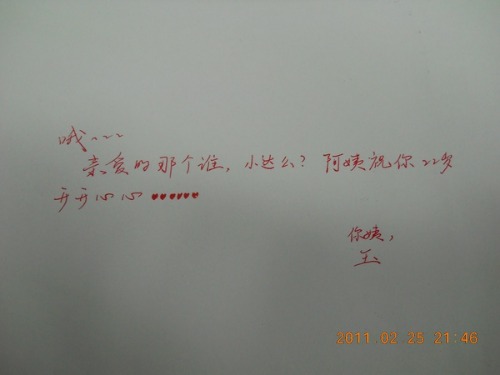 哦~~~
亲爱的那个谁，小达么？阿姨祝你22岁
开开心心♥♥♥♥♥♥
你姨，
玉
2011.02.25 21:46